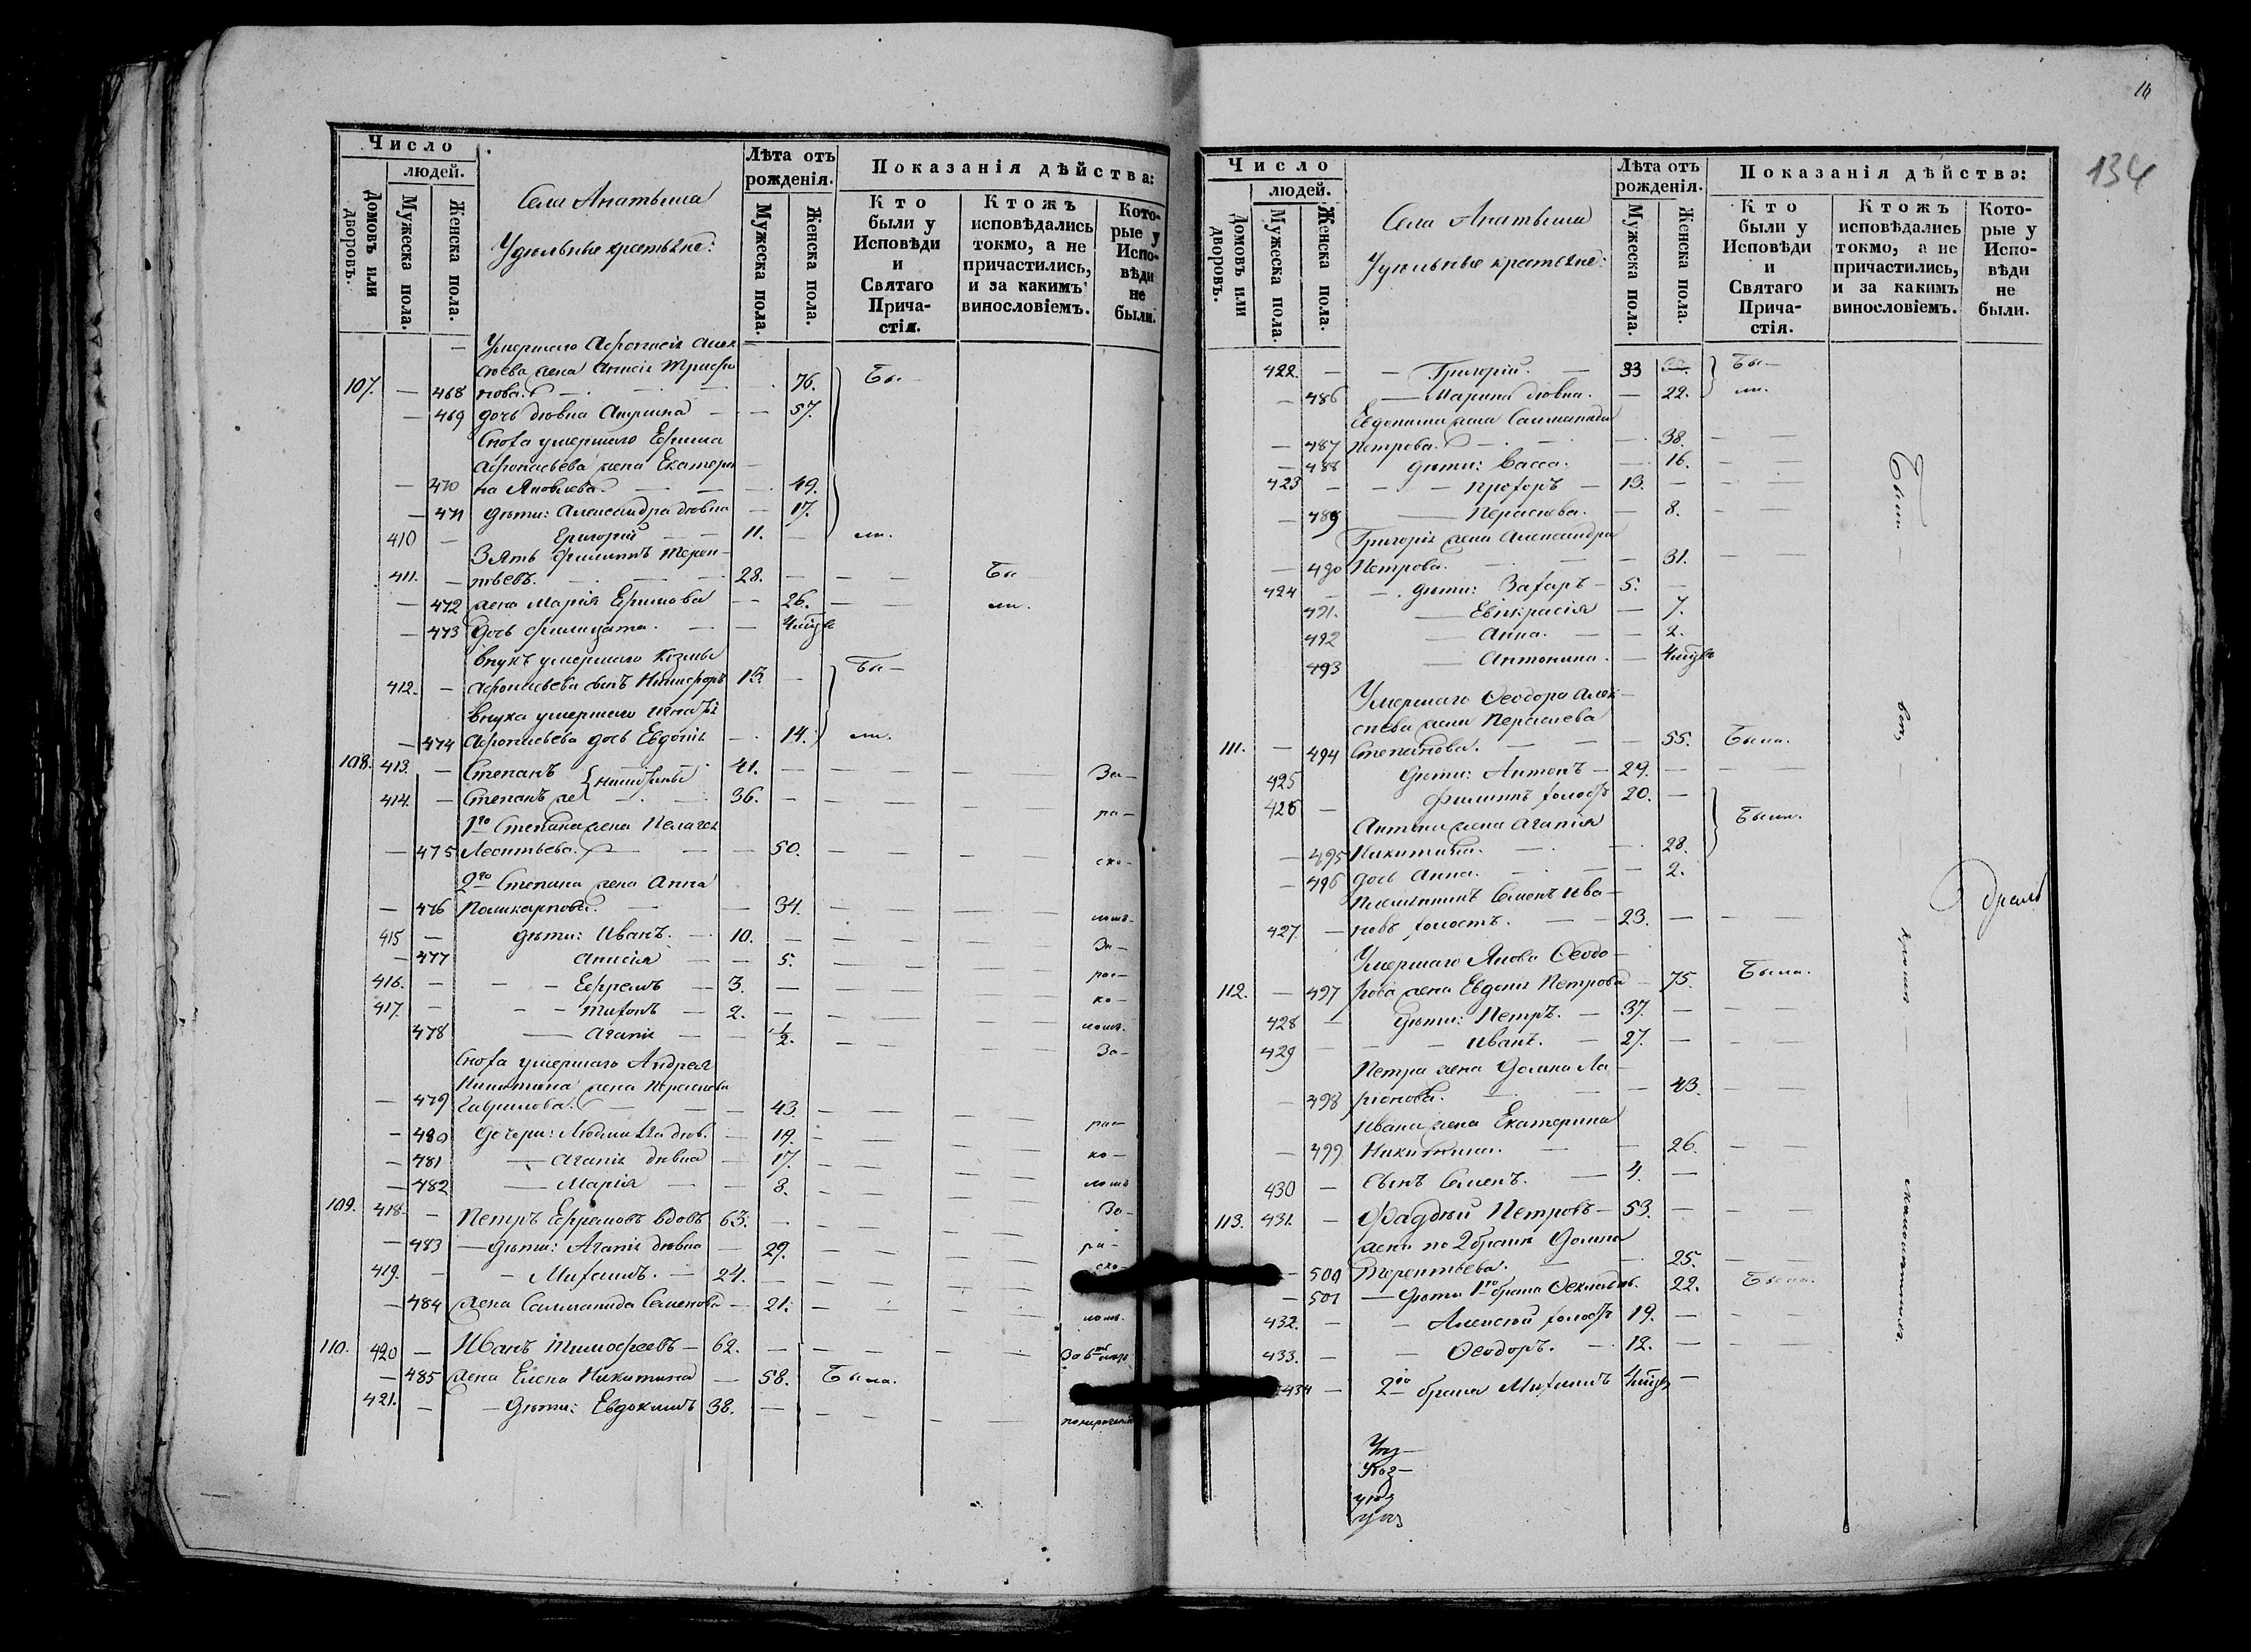 Число
людей.
Домовъ или дворовъ.
Мужеска пола.
Женска пола.
Села Анатыша
Удѣльные крестьяне:
Лѣта отъ рожденія.
Мужеска пола.
Женска пола.
Показанія дѣйства:
Кто были у Исповѣди и Святаго Прича-стія.
Ктожъ исповѣдались токмо, а не причастились, и за какимъ винословіемъ.
Кото-рые у Испо-вѣди не были.
Умершаго Афонасія Алек
сѣева жена Анисія Трифо
107. — 468 нова. — 76. Бы—
— 469 дочь дѣвка Акулина — 57.
Сноха умершаго Ефима
Афонасьева жена Екатери
— 470 на Яковлева. — 49.
— 471 дѣти: Александра дѣвка — 17.
410 — Григорій — 11. — ли.
Зять Филиппъ Терен—
411. — тьевъ. 28. — — Бы
— 472 жена Марія Ефимова — 26. — ли.
— 473 дочь Филицата. — 4 мѣся
Внукъ умершаго Козмы
412. — Афонасьева сынъ Никифоръ 15. — Бы—
Внука умершаго Игнатія
— 474 Афонасьева дочь Евдокія — 14. ли.
108. 413. — Степанъ Никитины 41. — За—
414. — Степанъ же — 36. —
1го Степана жена Пелагея ра—
— 475 Леонтьева. — 50. ско—
2го Степана жена Анна
— 476 Поликарпова. — 34. ломъ
415 — дѣти: Иванъ. — 10. — За—
— 477 Анисія — 5. рас—
416. — — Ефремъ — 3. — ко—
417. — — Тихонъ — 2. — ломъ.
478 — Агапія — 1/2. За—
Сноха умершаго Андрея
Никитина жена Парасковія
— 479 Гаврилова. — 43. рас—
— 480 дочери: дѣв. — 19. ко—
— 481 — Агапія дѣвка — 17. ломъ
— 482 — Марія — 3.
109. 418. — Петръ Ефремовъ вдовъ 63. — За—
— 483 — дѣти: Агапія дѣвка — 29. ра—
419. — — Михаилъ. — 24. — ско—
— 484 жена Саломанида Семенова — 21. ломъ.
110. 420 — Иванъ Тимофеевъ — 62. —
— 485 жена Елена Никитина — 58. Была.
421. — — дѣти: Евдокимъ 38. —
16
134
Число
людей.
Домовъ или дворовъ.
Мужеска пола.
Женска пола.
Села Анатыша
Удѣльные крестьяне:
Лѣта отъ рожденія.
Мужеска пола.
Женска пола.
Показанія дѣйства:
Кто были у Исповѣди и Святаго Прича-стія.
Ктожъ исповѣдались токмо, а не причастились, и за какимъ винословіемъ.
Кото-рые у Испо-вѣди не были.
422. — — Григорій. — 33 Бы—
— 486 — Марина дѣвка. — 22. ли.
Евдокима жена Саломанида
— 487 Петрова. — 38.
— 488 дѣти: Васса. — 16.
423 — — Прохоръ — 13. —
— 489 — Параскева. — 8.
Григорія жена Александра
— 490 Петрова. — 31.
424 — дѣти: Захаръ — 5. —
491. — Евпраксія — 7.
492 — Анна. — 2.
493 — Антонина. — 4 мѣся
Умершаго Ѳеодора Алек—
сѣева жена Параскева
111. — 494 Степанова. — 55. Была.
425 дѣти: Антонъ — 29. —
426 — Филиппъ холостъ 20. —
Антона жена Агапія Были.
— 495 Никитина. — 28.
— 496 дочь Анна. — 2.
Племянникъ Семенъ Ива—
427. — новъ холостъ. — 23. —
Умершаго Якова Ѳеодо—
112. — 497 рова жена Евдокія Петрова — 75. Была.
428 — дѣти: Петръ. — 37. —
429 — Иванъ. — 27. —
Петра жена Домна Ла—
— 498 ріонова. — 43.
Ивана жена Екатерина
— 499 Никитина. — 26.
430 — Сынъ Семенъ. — 4. —
113. 431. — Фаддѣй Петровъ — 53. —
жена по 2 бракѣ Домна
— 500 Терентьева. — 25.
— 501 — дѣти 1го брака Ѳекла дѣв. 22. Была.
432. — — Алексѣй холостъ 19. —
433. — — Ѳеодоръ. — 12. —
434 — 2го брака Михаилъ 4 мѣся —
Были